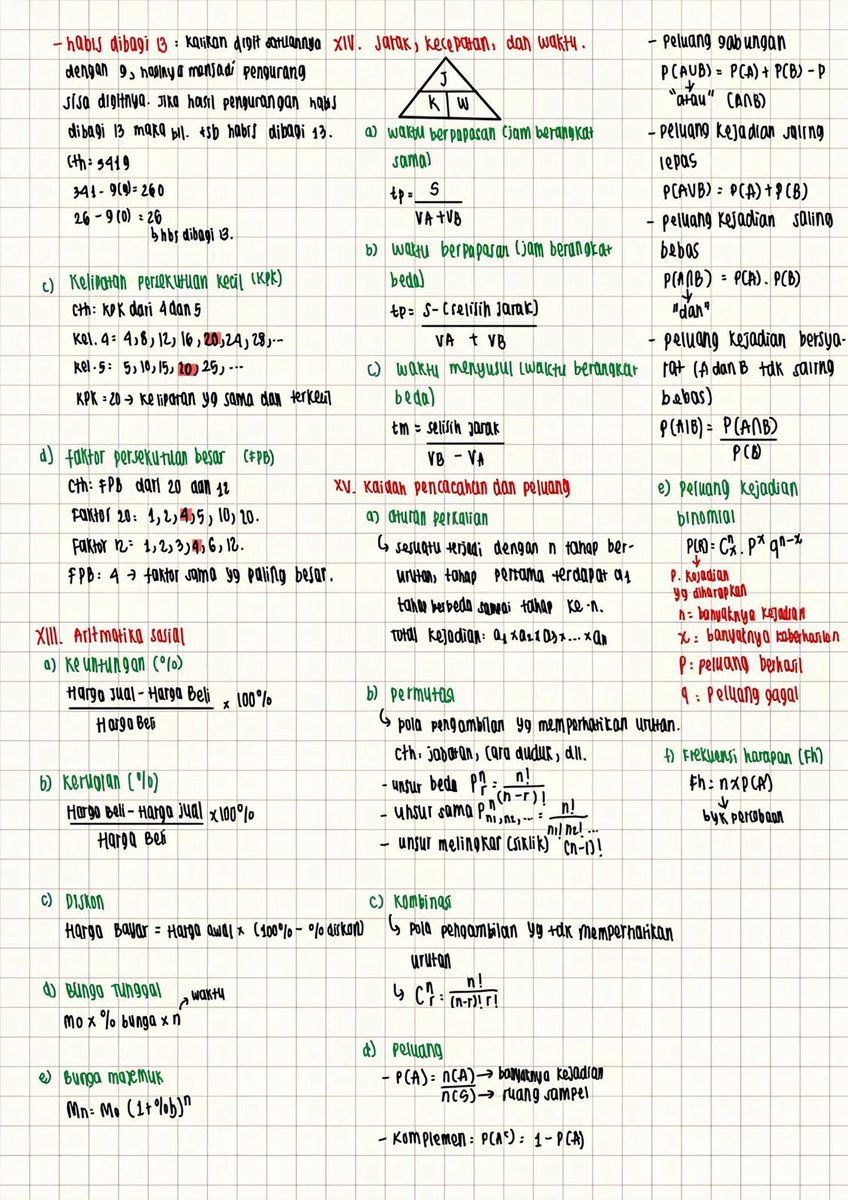 - habis dibagi 13 : kalikan digit satuannya
dengan 9, hasilnya menjadi pengurang
sisa digitnya. Jika hasil pengurangan habis
dibagi 13 maka bil. tsb habis dibagi 13.
Cth: 3419
341 - 9(9) = 260
26 - 9(0) = 26
↳ hbs dibagi 13.
c) Kelipatan persekutuan kecil (KPK)
Cth: KPK dari 4 dan 5
Kel. 4 = 4, 8, 12, 16, 20, 24, 28, ...
Kel. 5 = 5, 10, 15, 20, 25, ...
KPK = 20 → kelipatan yg sama dan terkecil
d) faktor persekutuan besar (FPB)
Cth: FPB dari 20 dan 12
Faktor 20: 1, 2, 4, 5, 10, 20.
Faktor 12 = 1, 2, 3, 4, 6, 12.
FPB: 4 → faktor sama yg paling besar.
XIII. Aritmatika sosial
a) Keuntungan (%)
Harga Jual - Harga Beli
x 100%
Harga Beli
b) Kerugian (%)
Harga Beli - Harga Jual
x 100%
Harga Beli
c) Diskon
Harga Bayar = Harga awal x (100% - % diskon)
d) Bunga Tunggal
Mo x % bunga x n → waktu
e) Bunga majemuk
Mn = Mo (1+%b)ⁿ
XIV. Jarak, kecepatan, dan waktu.
J
K W
a) waktu berpapasan (jam berangkat
sama)
tp = S
VA + VB
b) waktu berpapasan (jam berangkat
beda)
tp = S - (selisih jarak)
VA + VB
c) waktu menyusul (waktu berangkat
beda)
tm = selisih jarak
VB - VA
XV. Kaidah pencacahan dan peluang
a) aturan perkalian
↳ sesuatu terjadi dengan n tahap ber-
urutan, tahap pertama terdapat a1
tahap berbeda sampai tahap ke-n.
Total kejadian: a1 x a2 x a3 x ... x an
b) permutasi
↳ pola pengambilan yg memperhatikan urutan.
Cth: jabatan, cara duduk, dll.
- unsur beda Pⁿr = n!
(n-r)!
- unsur sama Pⁿ n1, n2, ... = n!
n1! n2! ...
- unsur melingkar (siklik) (n-1)!
c) Kombinasi
↳ pola pengambilan yg tdk memperhatikan
urutan
↳ Cⁿr = n!
(n-r)! r!
d) peluang
- P(A) = n(A) → banyaknya kejadian
n(S) → ruang sampel
- Komplemen = P(Aᶜ) = 1 - P(A)
- peluang gabungan
P(A∪B) = P(A) + P(B) - P
"atau" (A∩B)
- peluang kejadian saling
lepas
P(A∪B) = P(A) + P(B)
- peluang kejadian saling
bebas
P(A∩B) = P(A) . P(B)
"dan"
- peluang kejadian bersya-
rat (A dan B tdk saling
bebas)
P(A|B) = P(A∩B)
P(B)
e) peluang kejadian
binomial
P(A) = Cⁿx . Pˣ qⁿ⁻ˣ
P. kejadian
yg diharapkan
n = banyaknya kejadian
x : banyaknya keberhasilan
P : peluang berhasil
q : peluang gagal
f) Frekuensi harapan (Fh)
Fh : n x P(A)
byk percobaan